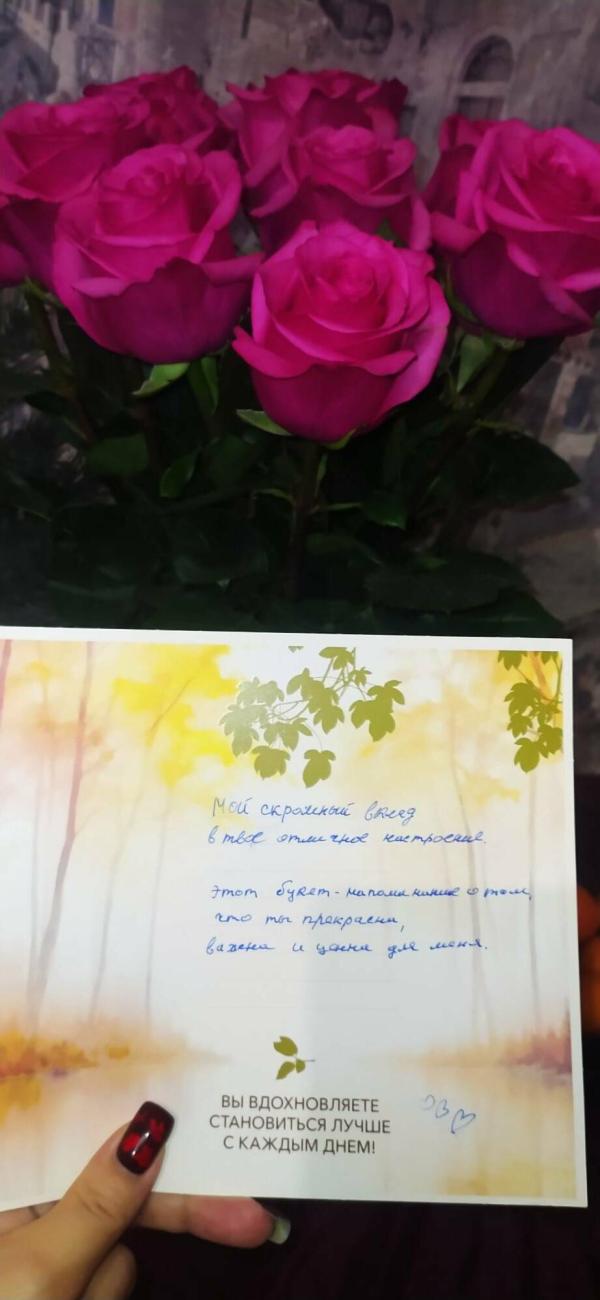 Мой скромный вклад
в твое отличное настроение.
Этот букет - напоминание о том,
что ты прекрасна,
важна и ценна для меня.
ВЫ ВДОХНОВЛЯЕТЕ
СТАНОВИТЬСЯ ЛУЧШЕ
С КАЖДЫМ ДНЕМ!